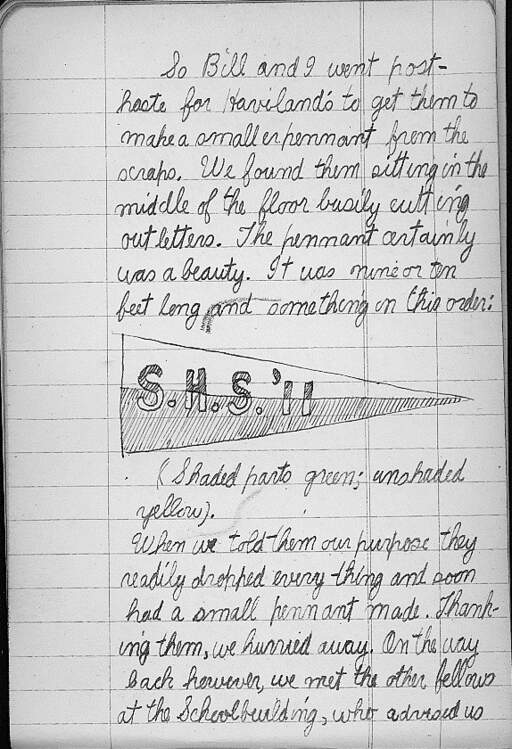 So Bill and I went post-
haste for Haviland's to get them to
make a smaller pennant from the
scraps. We found them sitting in the
middle of the floor busily cutting
out letters. The pennant certainly
was a beauty. It was nine or ten
feet long and something on this order:
S.H.S.'11
(Shaded parts green; unshaded
yellow).
When we told them our purpose they
readily dropped every thing and soon
had a small pennant made. Thank-
ing them, we hurried away. On the way
back however, we met the other fellows
at the School building, who advised us